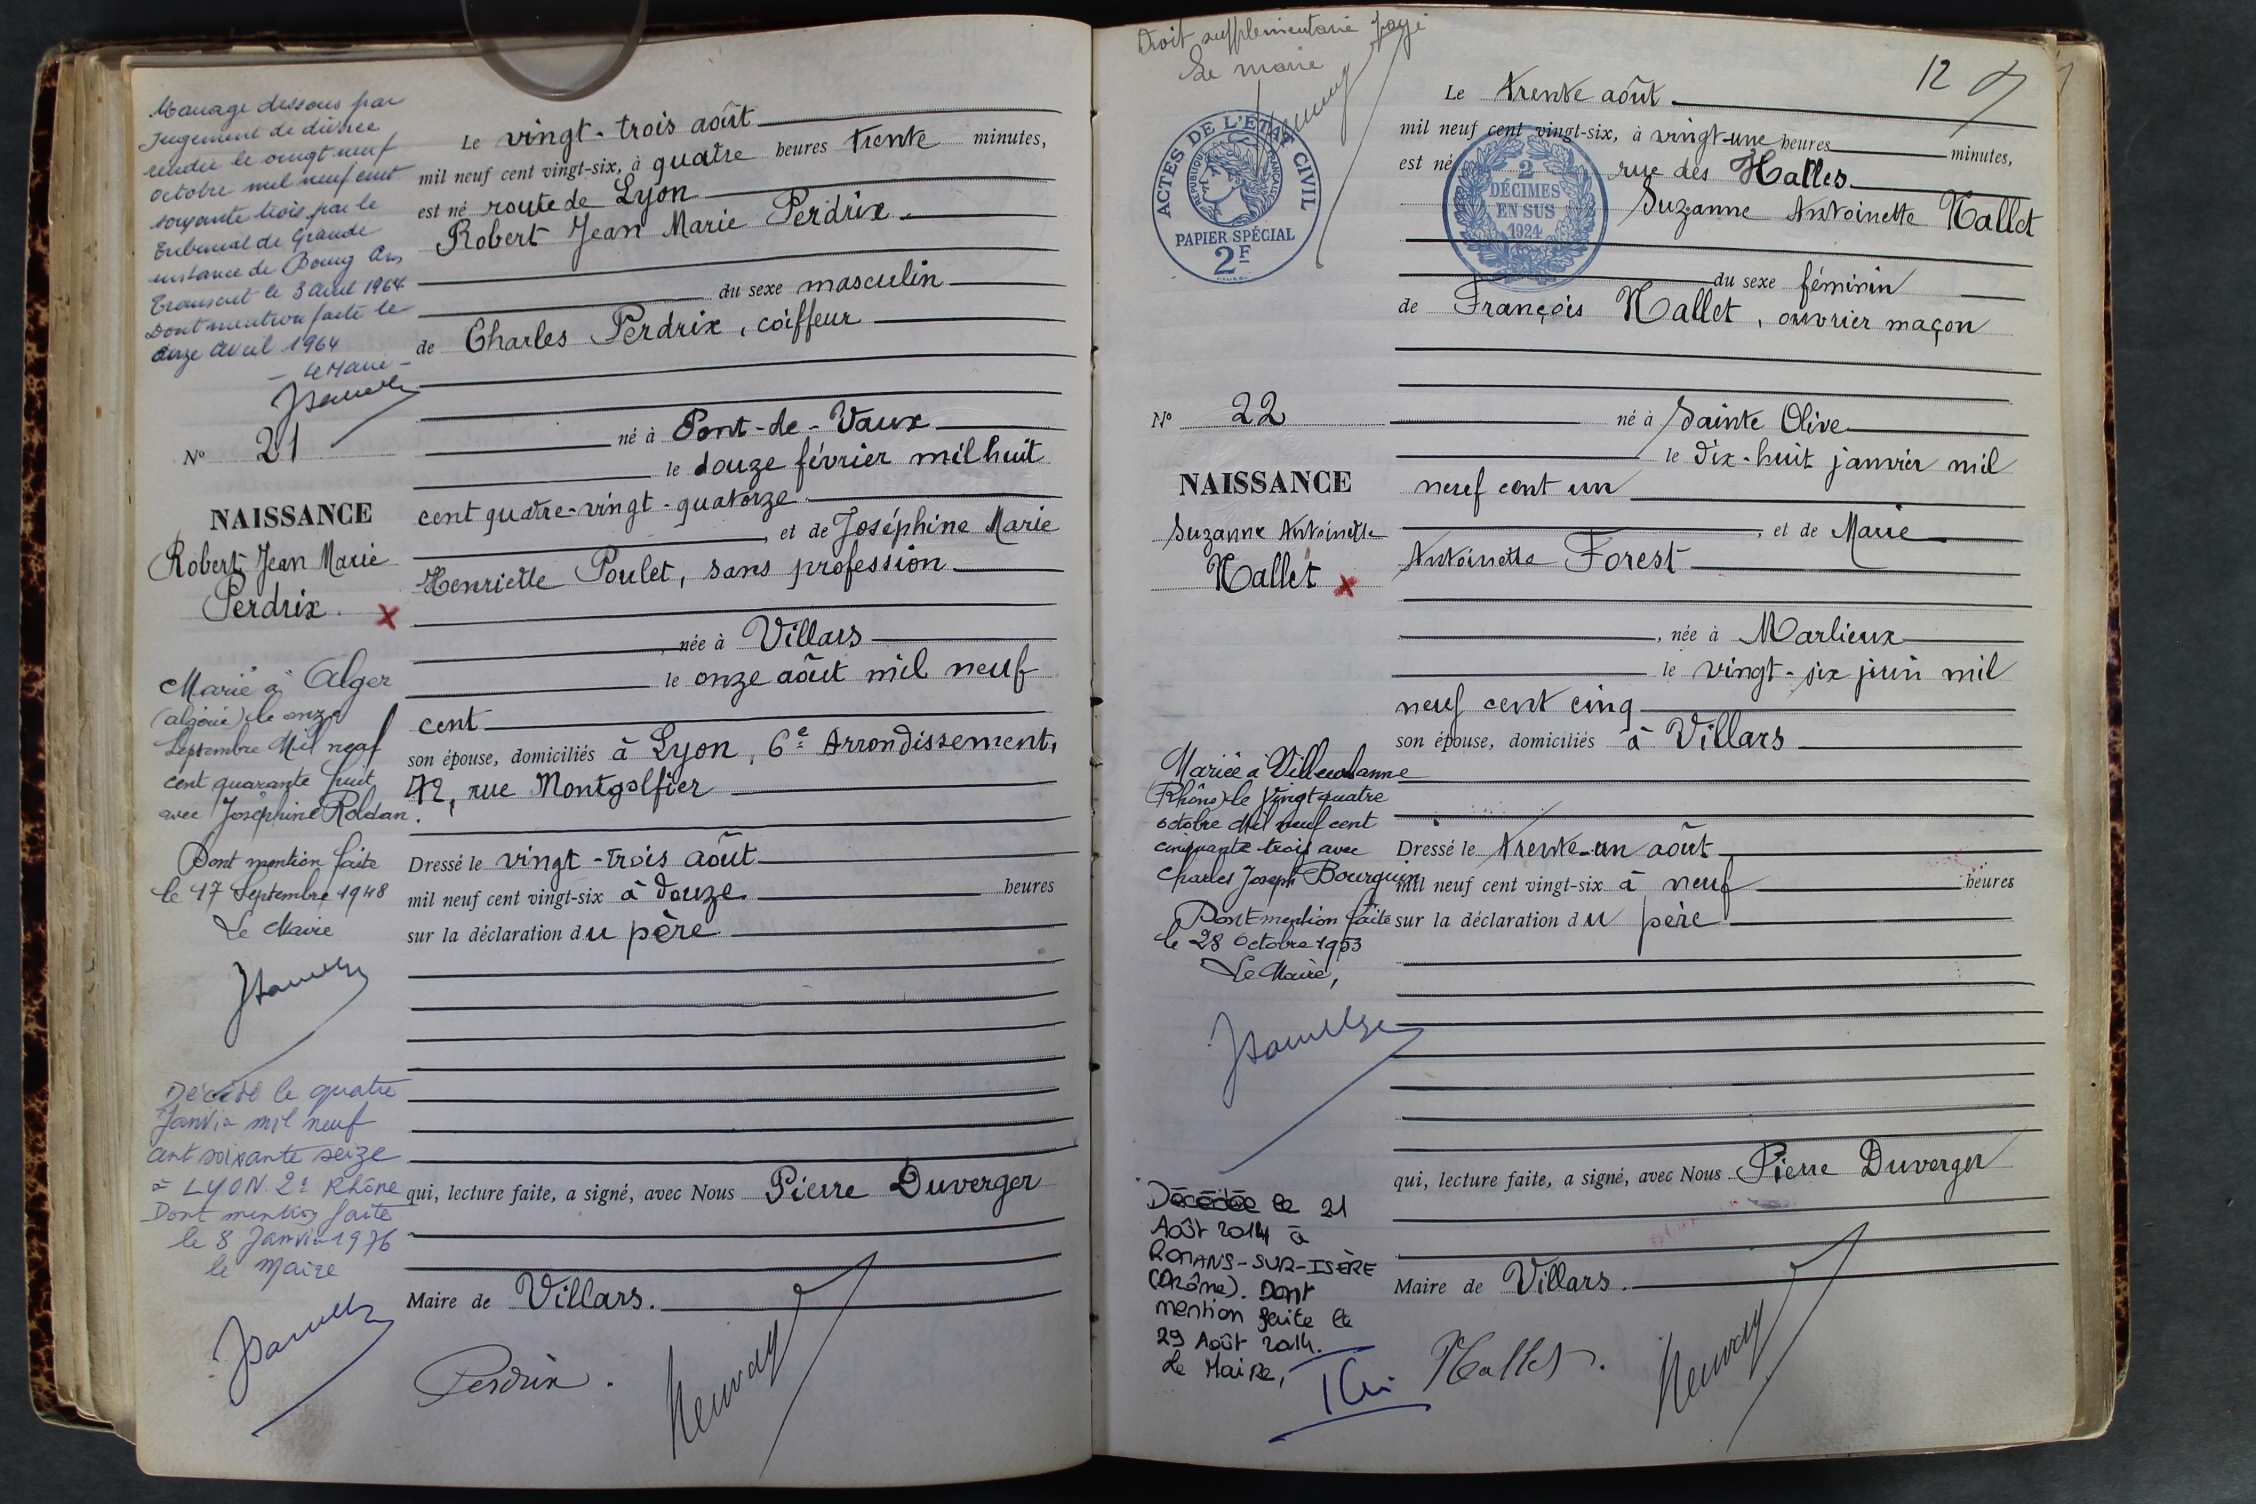 Mariage dissous par
Jugement de divorce
rendu le vingt neuf
octobre mil neuf cent
soixante trois par le
Tribunal de Grande
instance de Bourg Ain
Transcrit le 3 avril 1964
Dont mention faite le
onze Avril 1964
- Le Maire -
N° 21
NAISSANCE
Robert Jean Marie
Perdrix.
Marié à Alger
(algérie) le onze
Septembre Mil neuf
cent quarante huit
avec Joséphine Roldan.
Dont mention faite
le 17 Septembre 1948
Le Maire
Décédé le quatre
Janvier mil neuf
cent soixante seize
à LYON 2e Rhône
Dont mention faite
le 8 Janvier 1976
le Maire
Le vingt-trois août
mil neuf cent vingt-six, à quatre heures trente minutes,
est né route de Lyon
Robert Jean Marie Perdrix
du sexe masculin
de Charles Perdrix, coiffeur
né à Pont-de-Vaux
le douze février mil huit
cent quatre-vingt-quatorze
, et de Joséphine Marie
Henriette Poulet, sans profession
, née à Villars
le onze août mil neuf
cent
son épouse, domiciliés à Lyon, 6e Arrondissement,
42, rue Montgolfier
Dressé le vingt-trois août
mil neuf cent vingt-six à douze heures
sur la déclaration du père
qui, lecture faite, a signé, avec Nous Pierre Duverger
Maire de Villars.
Perdrix.
Droit supplémentaire payé
Le maire
ACTES DE L'ETAT CIVIL
REPUBLIQUE FRANCAISE
PAPIER SPÉCIAL
2F
N° 22
NAISSANCE
Suzanne Antoinette
Nallet
Mariée à Villeurbanne
(Rhône) le Vingt quatre
octobre Mil neuf cent
cinquante trois avec
Charles Joseph Bourguin
Dont mention faite
le 28 Octobre 1953
Le Maire,
Décédée le 21
Août 2014 à
ROMANS-SUR-ISÈRE
(Drôme). Dont
mention faite le
29 Août 2014.
Le Maire,
12
Le trente août
mil neuf cent vingt-six, à vingt-une heures minutes,
est né rue des Halles
2
DÉCIMES
EN SUS
1924
Suzanne Antoinette Nallet
du sexe féminin
de François Nallet, ouvrier maçon
né à Sainte Olive
le dix-huit janvier mil
neuf cent un
, et de Marie
Antoinette Forest
, née à Marlieux
le vingt-six juin mil
neuf cent cinq
son épouse, domiciliés à Villars
Dressé le trente-un août
mil neuf cent vingt-six à neuf heures
sur la déclaration du père
qui, lecture faite, a signé, avec Nous Pierre Duverger
Maire de Villars.
Nallet.